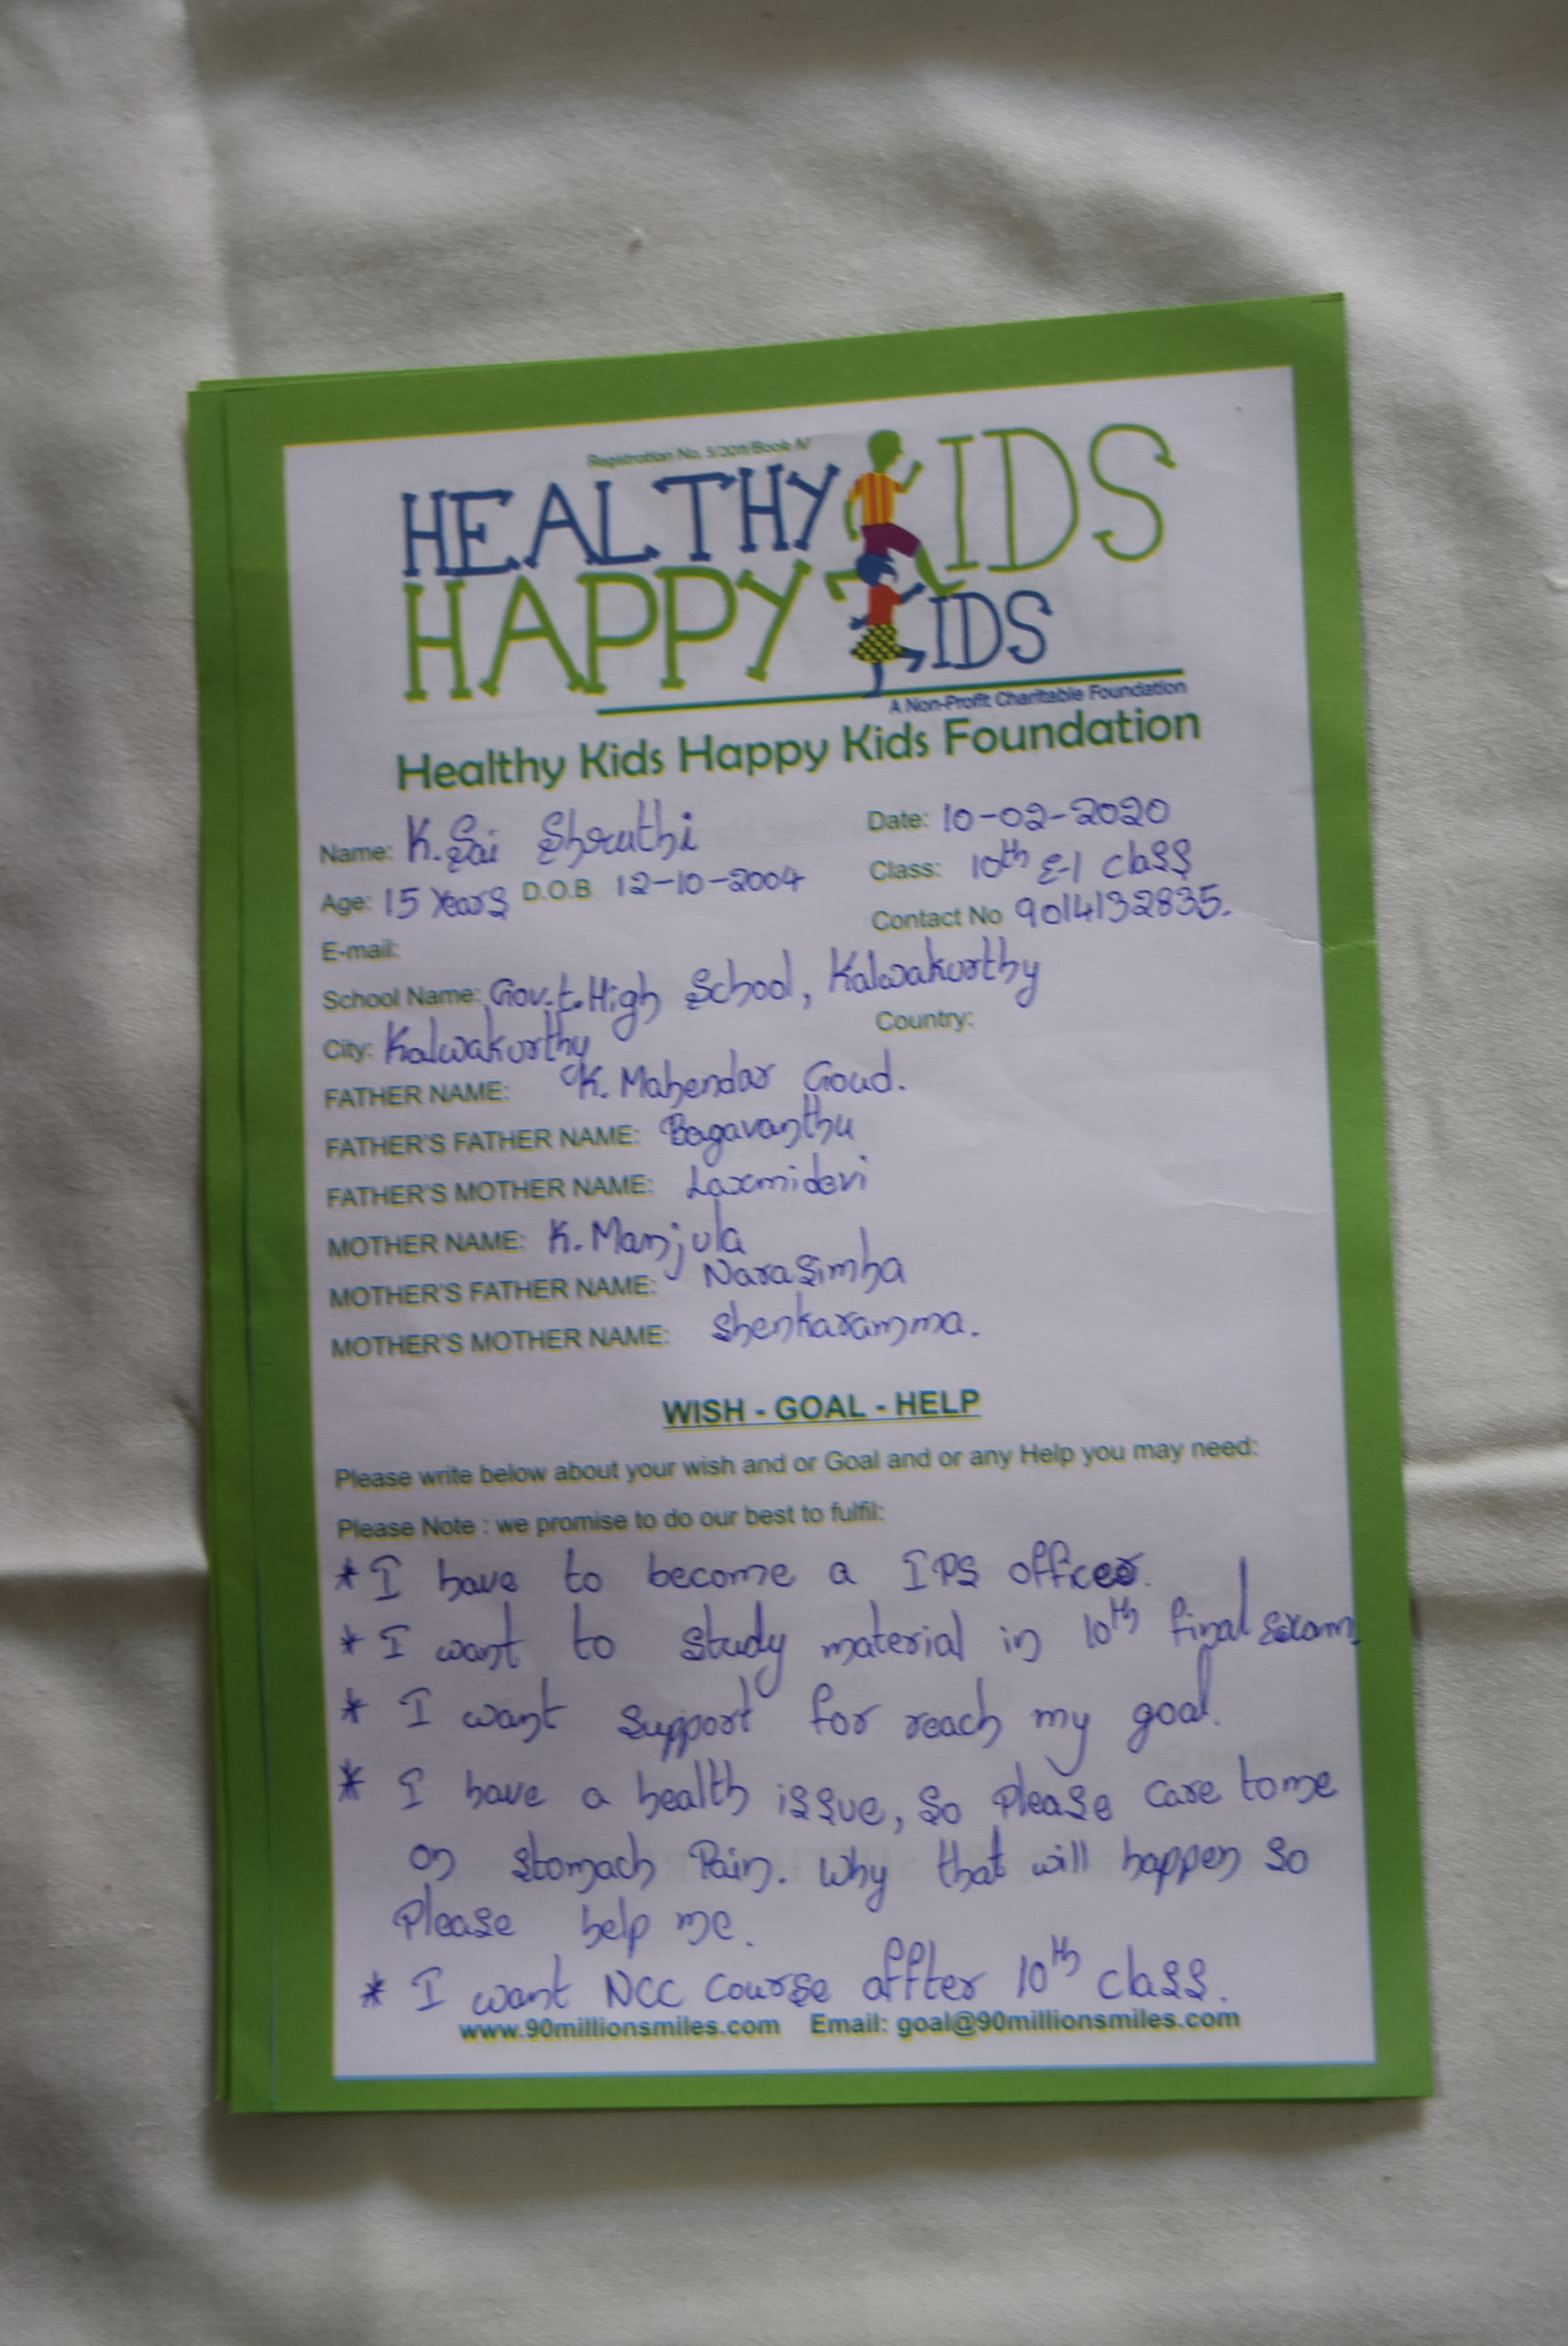 Registration No. 5/2011/Book IV
HEALTHY KIDS
HAPPY KIDS
A Non-Profit Charitable Foundation
Healthy Kids Happy Kids Foundation
Name: K. Sai Shruthi Date: 10-02-2020
Age: 15 Years D.O.B 12-10-2004 Class: 10th E-1 class
E-mail: Contact No 9014132835.
School Name: Gov.t. High School, Kalwakurthy
City: Kalwakurthy Country:
FATHER NAME: K. Mahendar Goud.
FATHER'S FATHER NAME: Bagavanthu
FATHER'S MOTHER NAME: Laxmidevi
MOTHER NAME: K. Manjula
MOTHER'S FATHER NAME: Narasimha
MOTHER'S MOTHER NAME: Shenkaramma.
WISH - GOAL - HELP
Please write below about your wish and or Goal and or any Help you may need:
Please Note : we promise to do our best to fulfil:
* I have to become a IPS officer.
* I want to study material in 10th final exam.
* I want support for reach my goal.
* I have a health issue, so please care to me
on stomach Pain. Why that will happen so
Please help me.
* I want NCC course affter 10th class.
www.90millionsmiles.com Email: goal@90millionsmiles.com